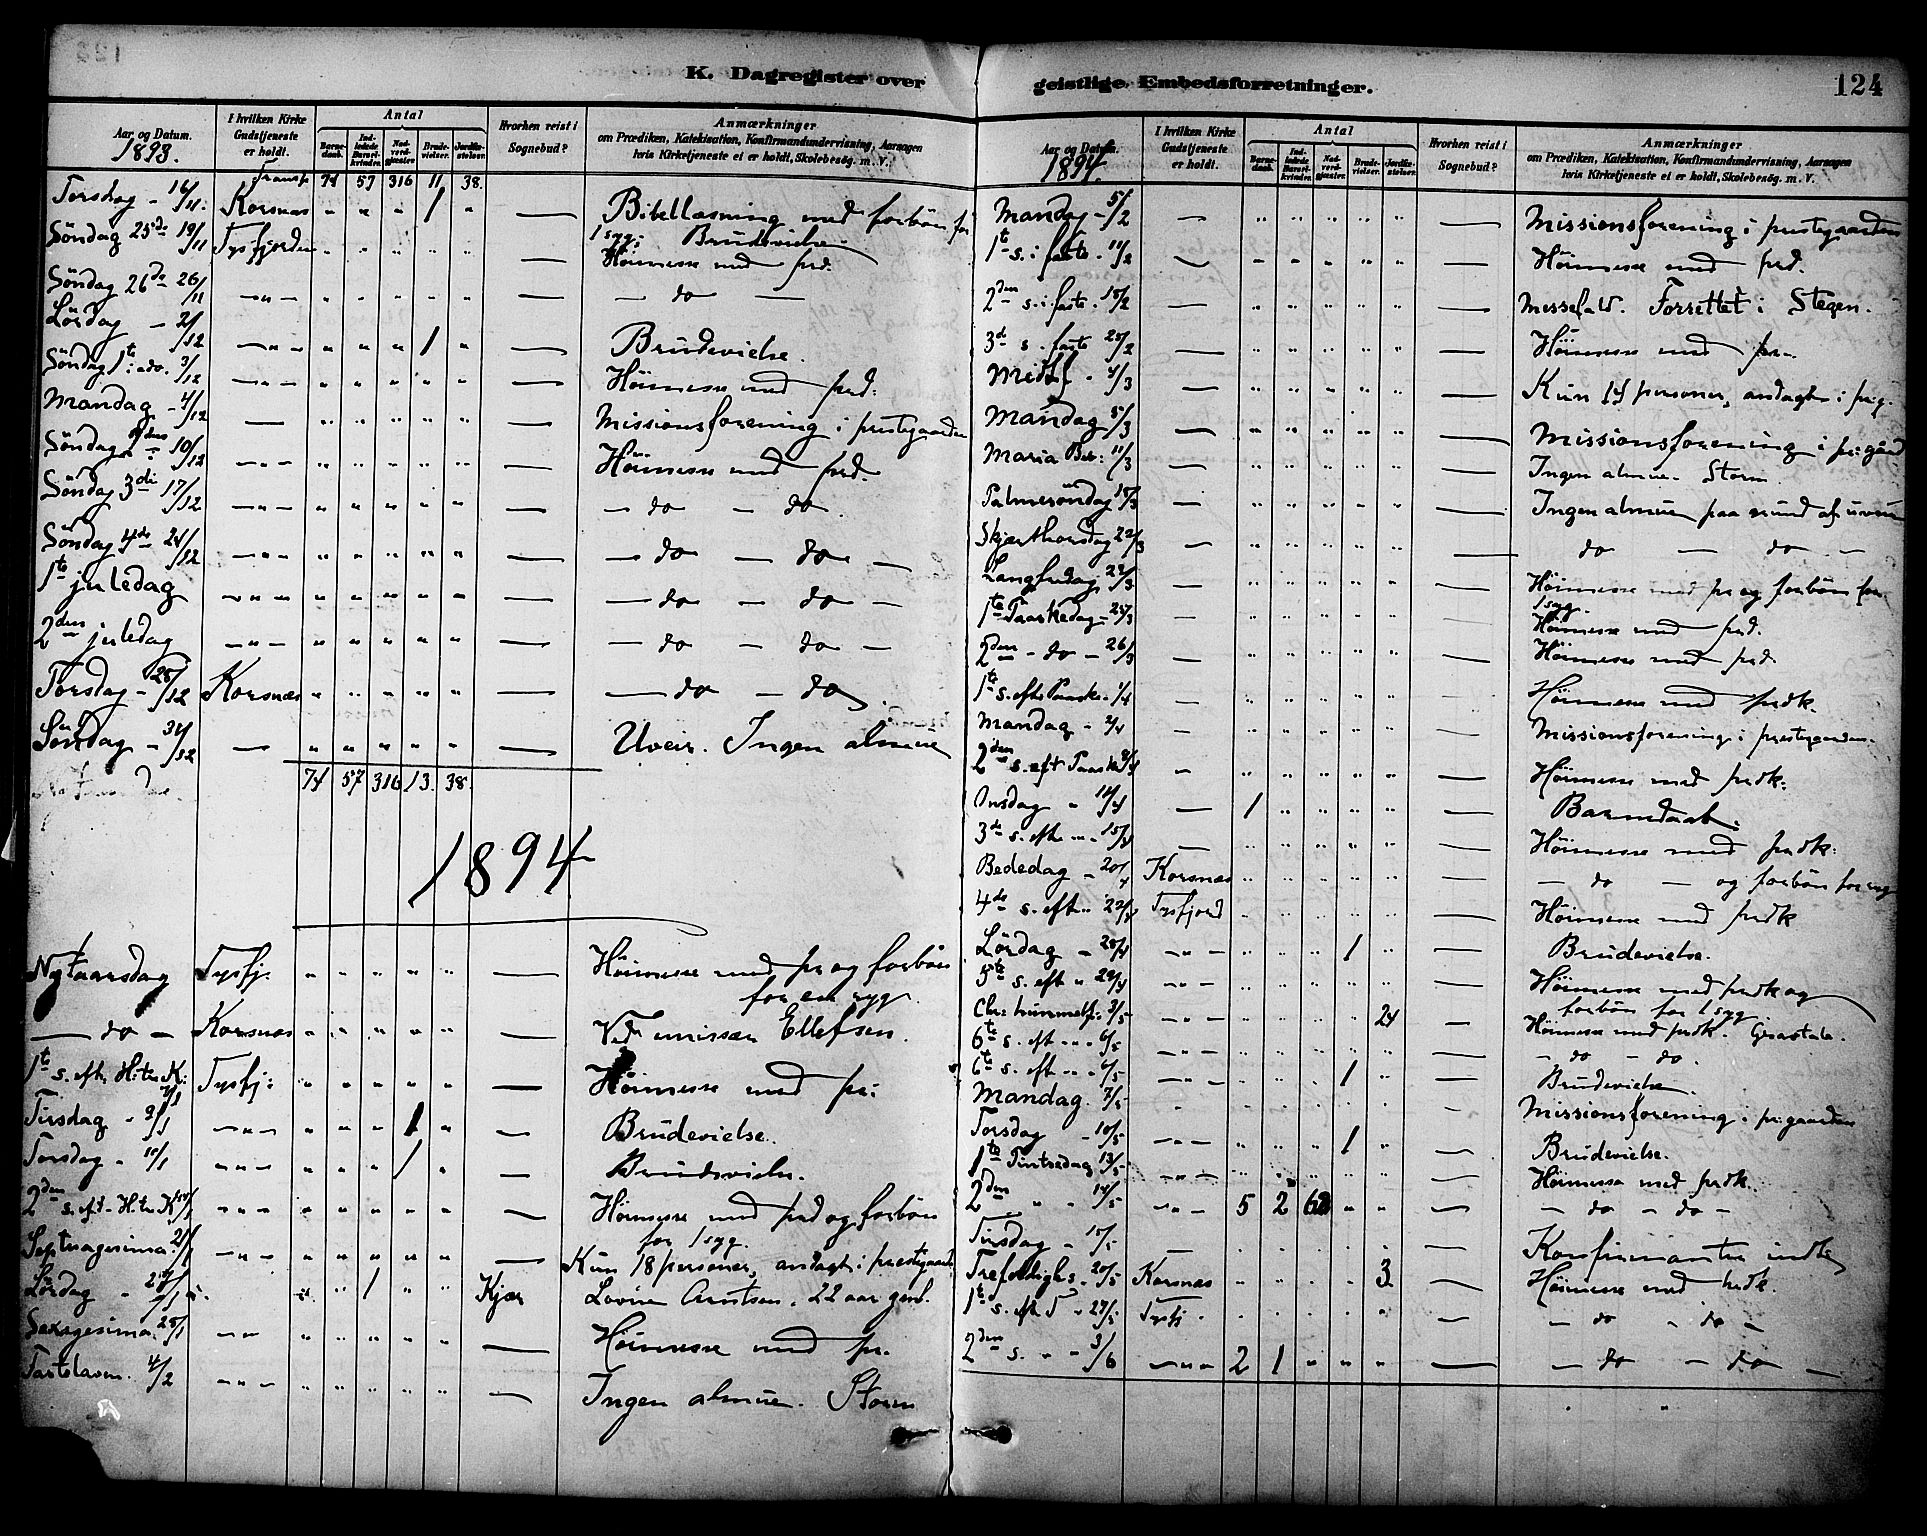 K. Dagregister over
Aar og Datum. 1893.
I hvilken Kirke Gudstjeneste er holdt.
Antal
Barne-daab. Ind-ledede Barsel-kvinder. Nad-verd-gjæster. Brude-vielser. Jordfæ-stelser.
Hvorhen reist i Sognebud?
Anmærkninger
om Prædiken, Katekisation, Konfirmandundervisning, Aarsagen
hvis Kirketjeneste ei er holdt, Skolebesøg. m. V.
Transp. 74 57 316 11 38.
Torsdag - 16/11. Korsnæs " " " 1 " — Bibellæsning med forbön for
1 syg; Brudevielse.
Söndag 25de 19/11 Tysfjorden " " " " " — Höimesse med præd.
Söndag 26de 26/11 — " — " " " " " — — do —
Lördag - 2/12 — " — " " " 1 " — Brudevielse.
Söndag 1te i adv. 3/12 — " — " " " " " — Höimesse med præd:
Mandag - 4/12 — " " " " " — Missionsforening i prestegaarden
Söndag 2den 10/12 — " — " " " " " — Höimesse med præd.
Söndag 3di 17/12 — " — " " " " " — — do — do
Söndag 4de 24/12 — " — " " " " " — — do — do —
1te juledag — " — " " " " " — — do — do —
2den juledag — " — " " " " " — — do — do —
Torsdag - 28/12 Korsnæs " " " " " — — do — do
Söndag - 31/12 — " " " " " — Uveir. Ingen almue
74 57 316 13. 38.
1894
Nytaarsdag Tysfj: " " " " " — Höimesse med pr og forbön
for en syg.
— do — Korsnæs " " " " " — Ved emissær Ellefsen.
1te s. eft. H. tre K: 7/1 Tysfj: " " " " " — Höimesse med pr:
Tirsdag - 9/1 — " — " " " 1 " — Brudevielse.
Torsdag - 11/1 — " — " " " 1 " — Brudevielse.
2den s. eft. H. tre K. — " — " " " " " — Höimesse med præd og forbön
for 1 syg.
Septuagesima. 21/1 — " — " " " " " — Kun 18 personer, andagt i prestegaard.
Lördag " " " 1 " " Kjær Lovise Arntsen. 22 aar gml.
Sexagesima. 28/1 — " — " " " " " — Höimesse med pr.
Fastelavn. 4/2 — " — " " " " " — Ingen almue. Storm
geistlige Embedsforretninger. 124
Aar og Datum. 1894
I hvilken Kirke Gudstjeneste er holdt.
Antal
Barne-daab. Ind-ledede Barsel-kvinder. Nad-verd-gjæster. Brude-vielser. Jordfæ-stelser.
Hvorhen reist i Sognebud?
Anmærkninger
om Prædiken, Katekisation, Konfirmandundervisning, Aarsagen
hvis Kirketjeneste ei er holdt, Skolebesøg. m. V.
Mandag - 5/2 — " " " " " — Missionsforening i prestegaarden
1te s. i faste. 11/2 — " " " " " — Höimesse med præd.
2den s. i faste. 18/2 — " " " " " — Messefald. Forrettet i Stegen.
3de s. faste 25/2 — " " " " " — Höimesse med pr.
Midtf - 4/3 — " " " " " — Kun 14 personer, andagt i prg.
Mandag 5/3 — " " " " " — Missionsforening i pr: gård
Maria Beb: 11/3 — " " " " " — Ingen almue. Storm.
Palmesöndag 18/3 — " " " " " — Ingen almue paa grund af uveir
Skjærthorsdag 22/3 — " " " " " — do — do —
Langfredag 23/3 — " " " " " — Höimesse med pr og forbön for
1 syg.
1te Paaskedag 25/3 — " " " " " — Höimesse med præd.
2den - do - 26/3 — " " " " " — Höimesse med præd.
1te s. efter Paaske. 1/4 — " " " " " — Höimesse med prædk.
Mandag - 2/4 — " " " " " — Missionsforening i prestegaarden.
2den s. eft Paaske 8/4 — " " " " " — Höimesse med prædk:
Onsdag " 11/4 — 1 " " " " — Barnedaab.
3de s. eft " 15/4 — " " " " " — Höimesse med prædk:
Bededag - 20/4 Korsnæs " " " " " — — do — og forbön for syg
4de s. eft " 22/4 Tysfjord " " " " " — Höimesse med prædk
Lördag - 28/4 — " — " " " 1 " — Brudevielse.
5te s. eft " 29/4 — " — " " " " " — Höimesse med prædk og
forbön for 1 syg.
Chr: himmelf: 3/5 — " — " " " " 24 — Höimesse med prædk. Gravtale.
6te s. eft " 6/5 — " — " " " " " — — do — do.
6te s. eft " 6/5 — " — " " " 1 " — Brudevielse
Mandag 7/5 " " " " " — Missionsforening i pr: gaarden
Torsdag - 10/5 — " — " " " 1 " — Brudevielse.
1te Pintsedag 13/5 — " — " " " " " — Höimesse med prædk.
2den " " 14/5 — " — 5 2 " " — — do — do —
Tirsdag - 15/5 — " " " " " — Konfirmanter indt
Trefoldighs. 20/5 Korsnæs " " " " 3. — Höimesse med prædk.
1te s. eft T " 27/5 Tysfj. " " " " " — — do " do —
2den s. " " 3/6 — " " 2 1 " " " — — do — do —